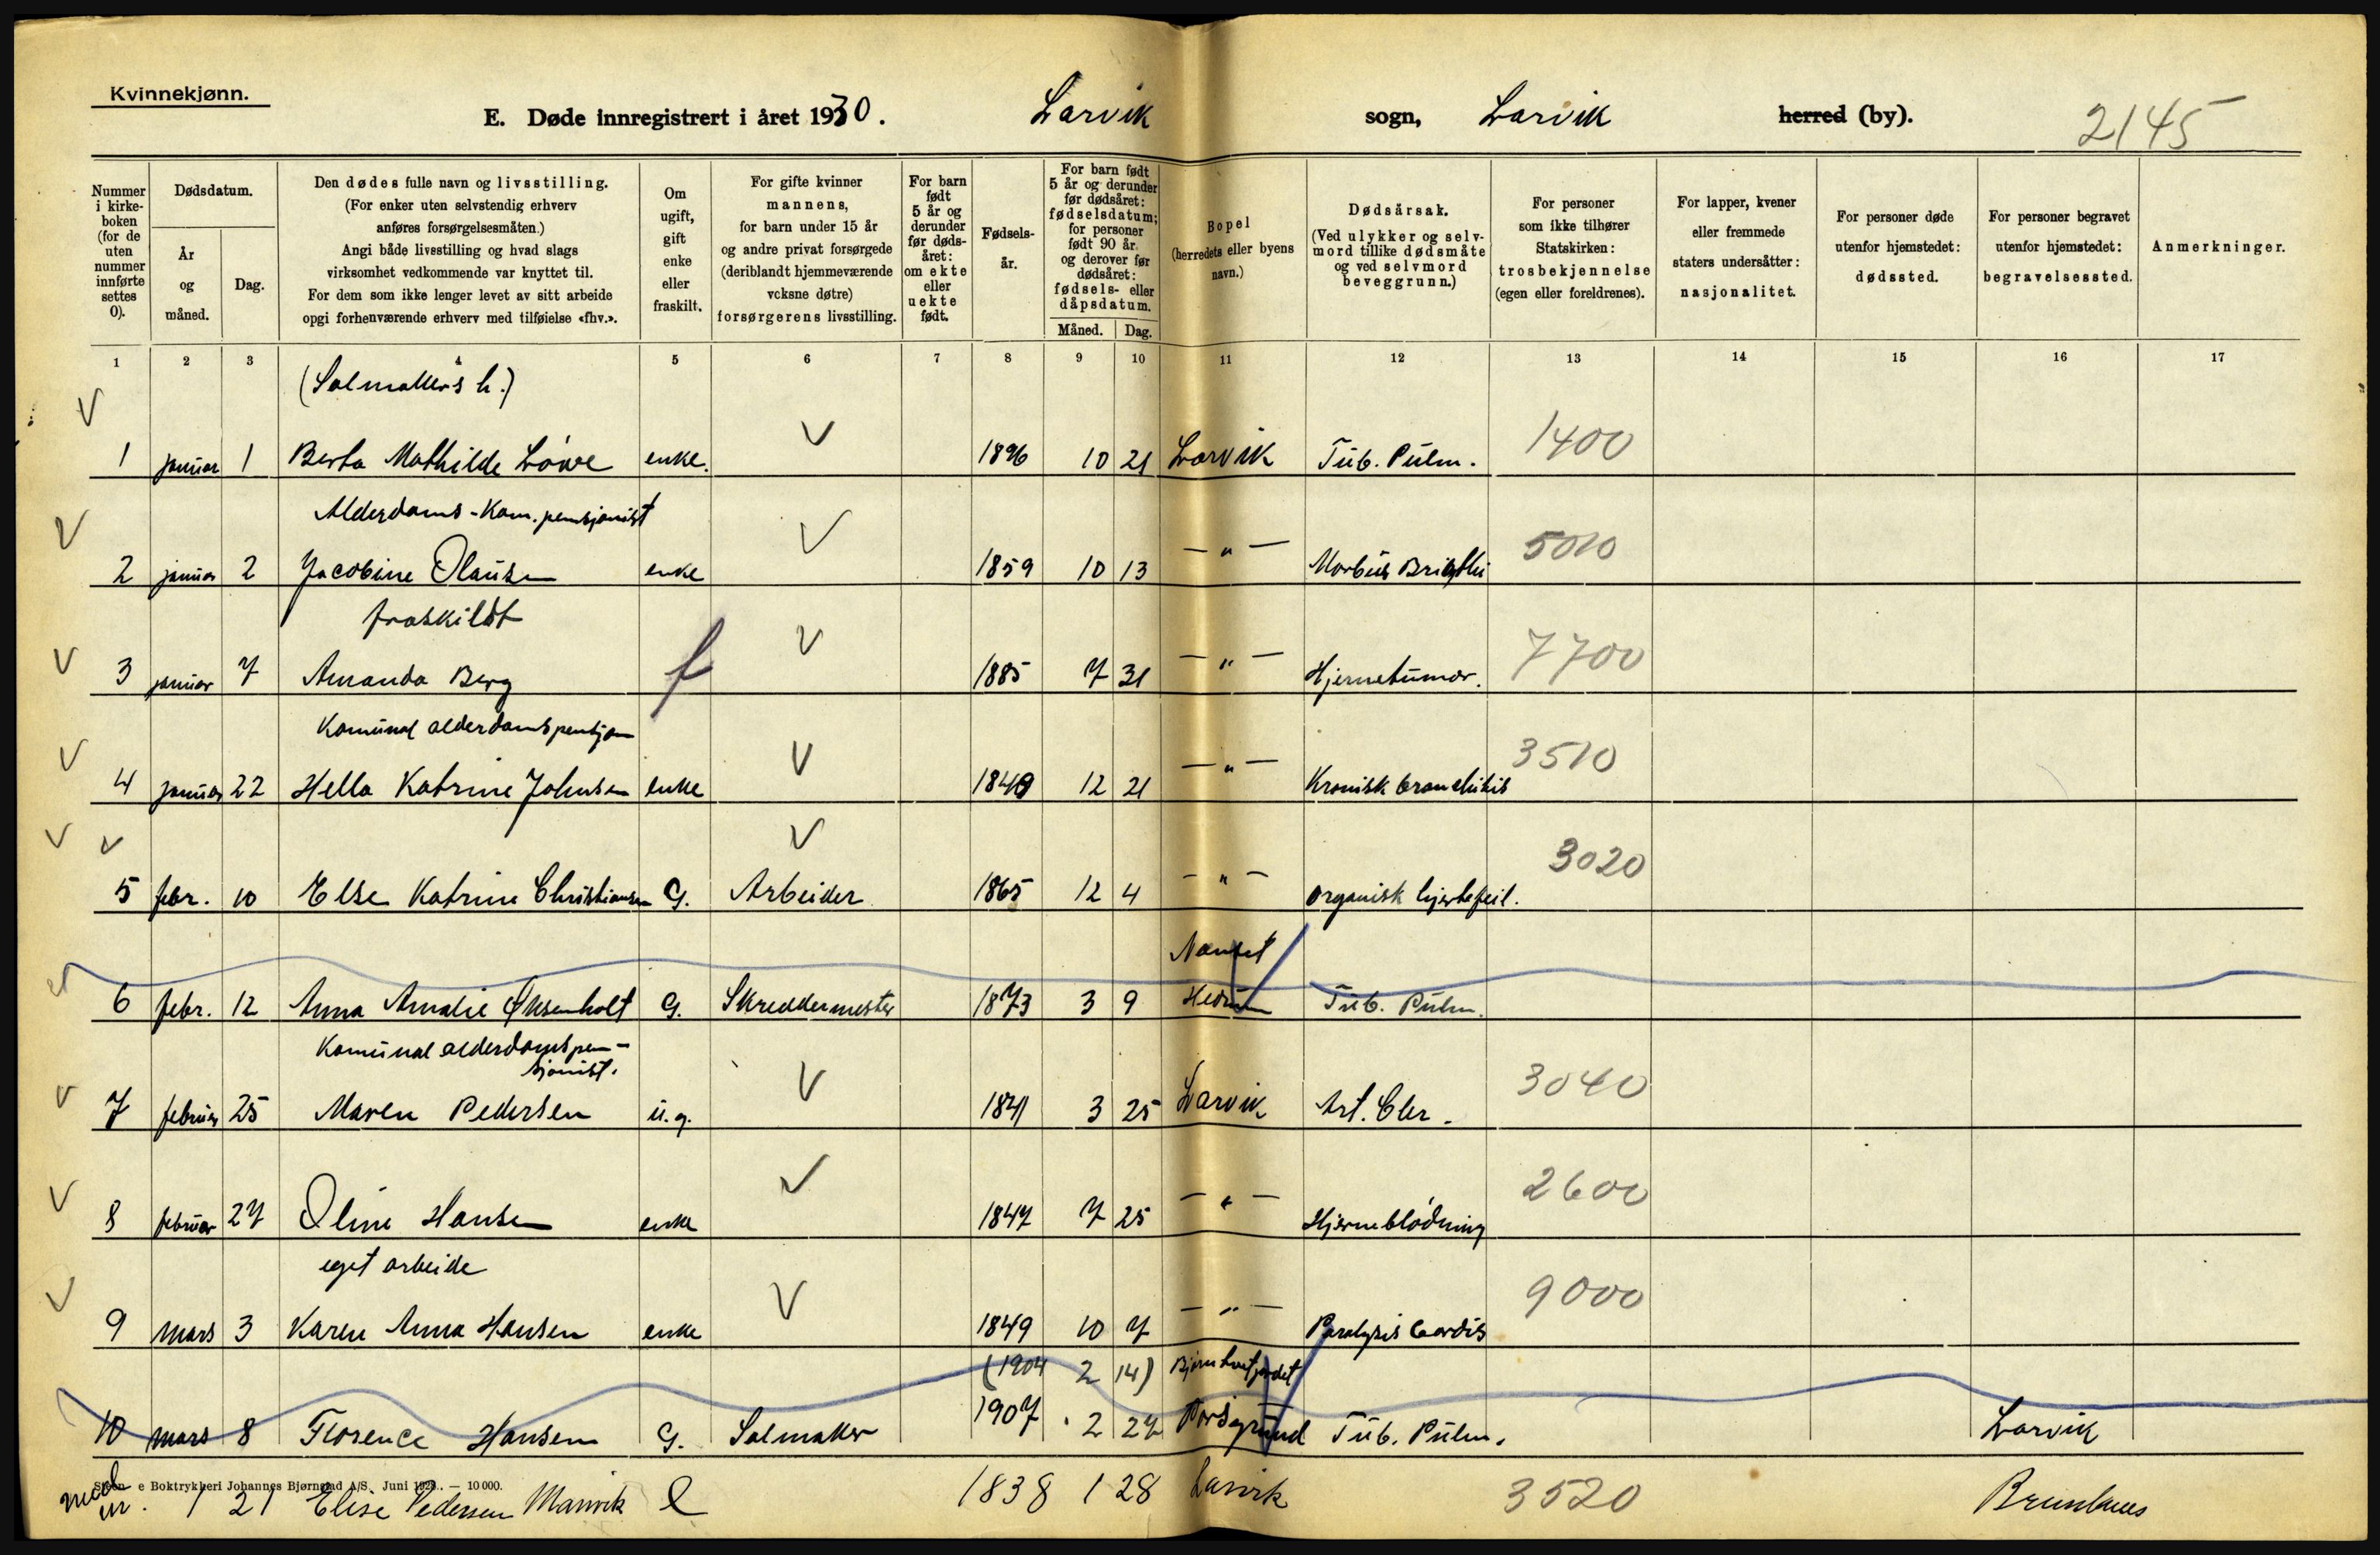 Kvinnekjønn.
E. Døde innregistrert i året 1930. Larvik sogn, Larvik herred (by). 2145
Nummer i kirke-boken (for de uten nummer innførte settes 0).
Dødsdatum.
År og måned.
Dag.
Den dødes fulle navn og livsstilling.
(For enker uten selvstendig erhverv
anføres forsørgelsesmåten.)
Angi både livsstilling og hvad slags
virksomhet vedkommende var knyttet til.
For dem som ikke lenger levet av sitt arbeide
opgi forhenværende erhverv med tilføielse «fhv.».
Om ugift, gift enke eller fraskilt.
For gifte kvinner
mannens,
for barn under 15 år
og andre privat forsørgede
(deriblandt hjemmeværende
voksne døtre)
forsørgerens livsstilling.
For barn født 5 år og derunder før døds-året: om ekte eller uekte født.
Fødsels-år.
For barn født
5 år og derunder
før dødsåret:
fødselsdatum;
for personer
født 90 år
og derover før
dødsåret:
fødsels- eller
dåpsdatum.
Måned. Dag.
Bopel
(herredets eller byens
navn.)
Dødsårsak.
(Ved ulykker og selv-
mord tillike dødsmåte
og ved selvmord
beveggrunn.)
For personer
som ikke tilhører
Statskirken:
trosbekjennelse
(egen eller foreldrenes).
For lapper, kvener
eller fremmede
staters undersåtter:
nasjonalitet.
For personer døde
utenfor hjemstedet:
dødssted.
For personer begravet
utenfor hjemstedet:
begravelsessted.
Anmerkninger.
1 2 3 4 5 6 7 8 9 10 11 12 13 14 15 16 17
(Salmakers h.)
1 januar 1 Berta Mathilde Løwe enke. 1896 10 21 Larvik Tub. Pulm. 1400
Alderdoms-Kom. pensjonist
2 januar 2 Jacobine Olausen enke 1859 10 13 -"- Morbus Brigthi 5010
fraskildt
3 januar 7 Amanda Berg f 1885 7 31 -"- Hjernetumor. 7700
Komunal alderdomspensjon
4 januar 22 Hella Katrine Johnsen enke 1849 12 21 -"- Kronisk bronchitis 3510
5 febr. 10 Else Katrine Christiansen G. Arbeider 1865 12 4 -"- organisk hjertefeil. 3020
Nanset
6 febr. 12 Anna Amalie Øksenholt G. Skreddermester 1873 3 9 Hedrum Tub. Pulm.
Komunal alderdomspen-
sjonist.
7 februar 25 Maren Pedersen u.g. 1841 3 25 Larvik Art. Cler. 3040
8 februar 27 Oline Hansen enke 1847 7 25 -"- Hjerneblødning 2600
eget arbeide
9 mars 3 Karen Anna Hansen enke 1849 10 7 -"- Paralysis Cordis 9000
(1904 2 14)
10 mars 8 Florence Hansen G. Salmaker 1907 2 27 Porsgrund Tub. Pulm. Larvik
e Boktrykkeri Johannes Bjørnstad A/S. Juni — 10 000.
1 21 Elise Pedersen Manvik e 1838 1 28 Larvik 3520 Brunlanes